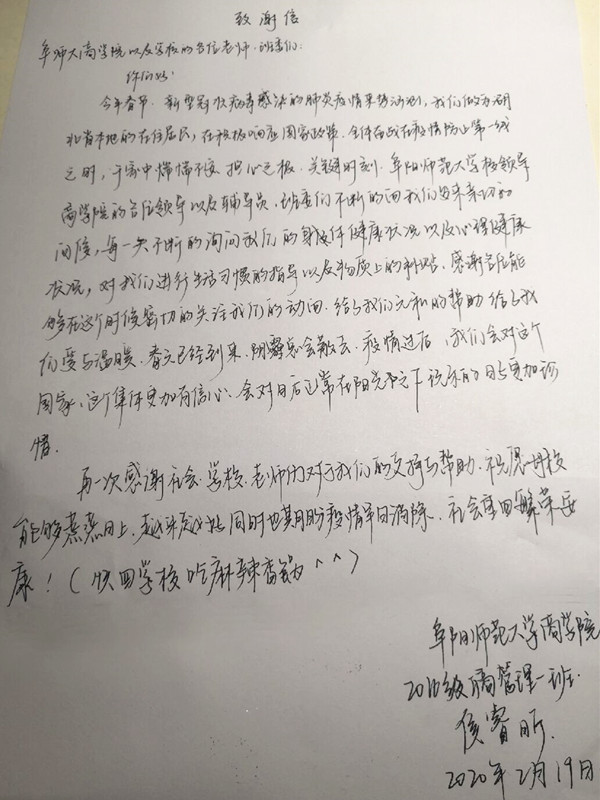 致谢信
阜师大商学院以及学校的各位老师、班委们:
你们好!
今年春节,新型冠状病毒感染的肺炎疫情来势汹汹,我们做为湖
北省本地的在住居民,在积极响应国家政策、全体奋战在疫情防止第一线
之时,于家中惴惴不安、担心之极。关键时刻,阜阳师范大学校领导
商学院的各位领导以及辅导员、班委们不断的向我们发来亲切的
问候,每一天不断的询问我们的身体健康状况以及心理健康
状况,对我们进行生活习惯的指导以及物质上的补贴。感谢各位能
够在这个时候密切的关注我们的动向,给了我们无私的帮助,给了我
们爱与温暖。春天已经到来,阴霾总会散去,疫情过后,我们会对这个
国家、这个集体更加有信心。会对日后正常在阳光之下玩乐的日子更加珍
惜。
再一次感谢社会、学校、老师们对于我们的支持与帮助。祝愿母校
能够蒸蒸日上,越来越好,同时也期盼疫情早日消除、社会早回繁荣安
康!(快回学校吃麻辣香锅^^)
阜阳师范大学商学院
管理一班
侯睿昕.
2020年2月19日